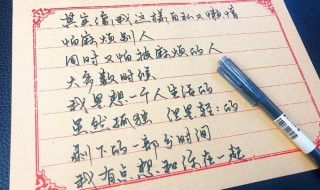 其实像我这样自私又懒惰
怕麻烦别人
同时又怕被麻烦的人
大多数时候
我是想一个人生活的
虽然孤独 但是轻的
剩下的一部分时间
我有点想和你在一起